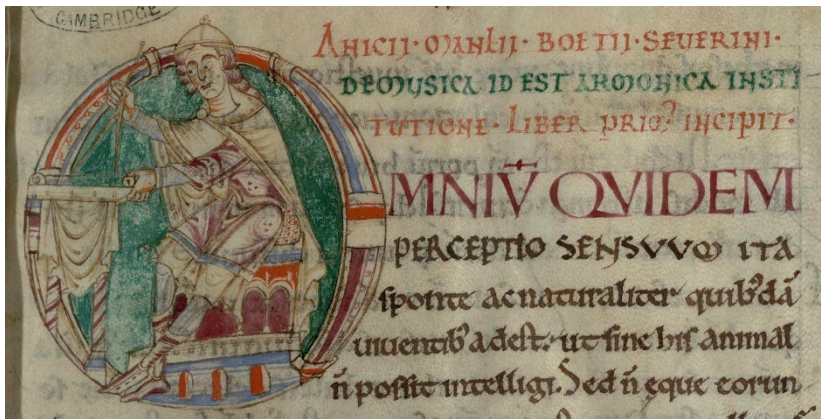 CAMBRIDGE
ANICII·MANLII·BOETII·SEUERINI·
DE MUSICA ID EST ARMONICA INSTI
TUTIONE·LIBER PRIM᷒ INCIPIT·
OMNIV̄ QVIDEM
PERCEPTIO SENSVVM ITA
sponte ac naturaliter quib᷒dā
uiuentib᷒ adest. ut sine his animal
n̄ possit intelligi. Sed n̄ ęque eorun